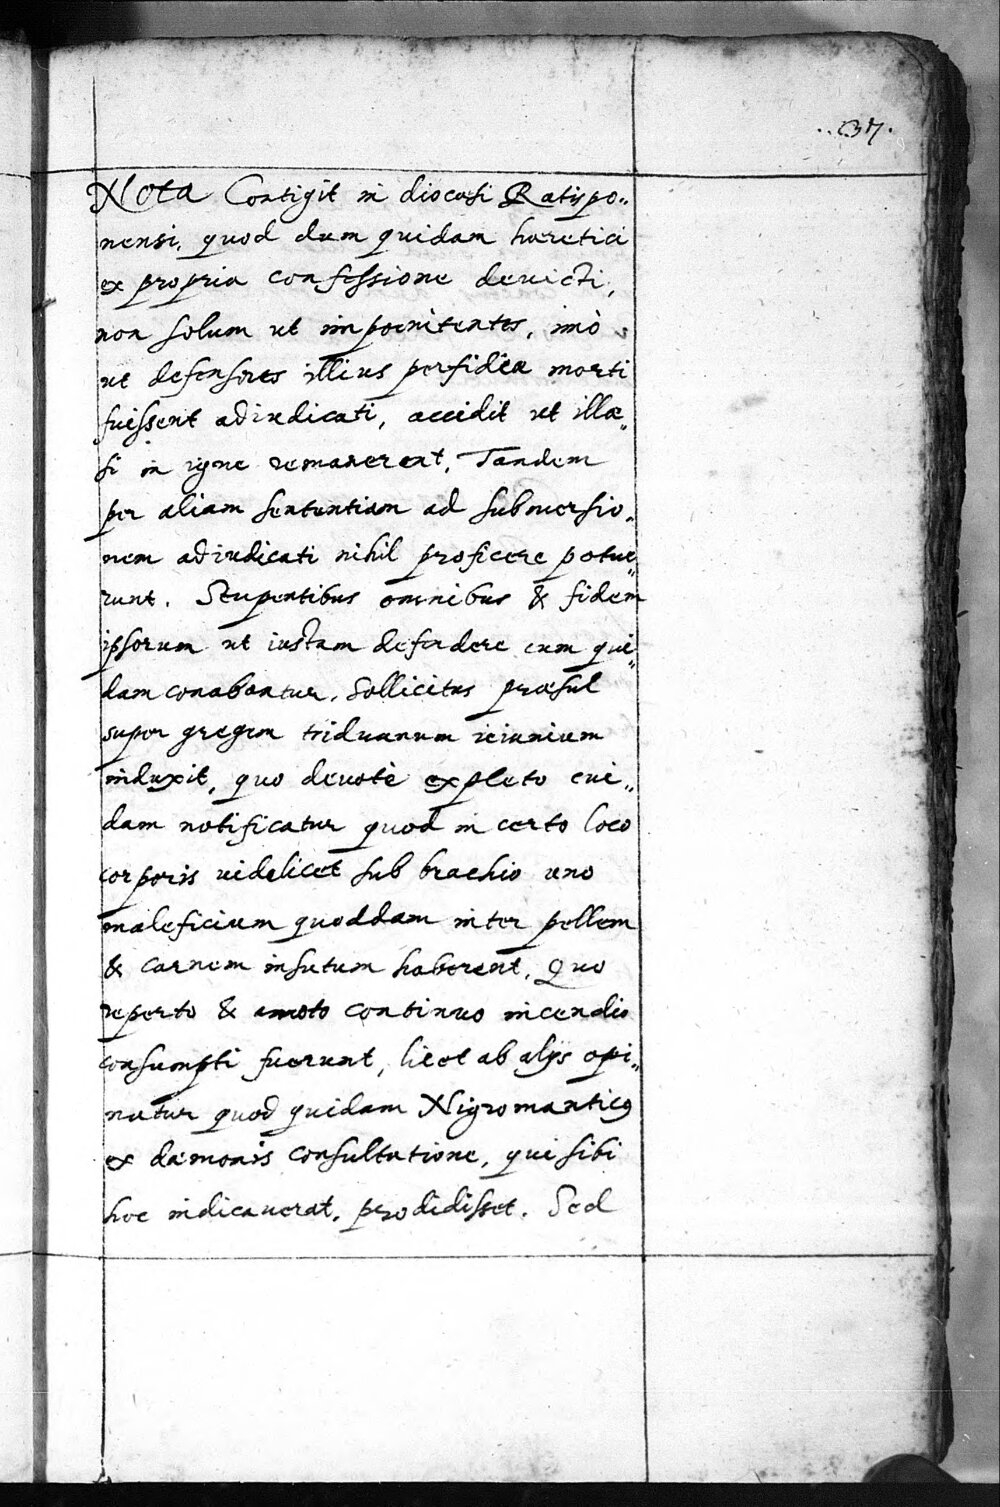 37.
Nota Contigit in diocesi Ratispo„
nensi, quod dum quidam hæretici
ex propria confessione deuicti,
non solum ut impoenitentes, imò
ut defensores illius perfidiæ morti
fuissent adiudicati, accidit ut illæ„
si in igne remanerent, Tandem
per aliam sententiam ad submersio„
nem adiudicati nihil proficere potue„
runt. Stupentibus omnibus & fidem
ipsorum ut iustam defendere cum qui„
dam conabantur, sollicitus præsul
super gregem triduanum ieiunium
induxit, quo deuotè expleto cui„
dam notificatur quod in certo loco
corporis uidelicet sub brachio uno
maleficium quoddam inter pellem
& carnem insutum haberent, Quo
reperto & amoto continuo incendio
consumpti fuerunt, licet ab alijs opi„
natur quod quidam Nigromanticus
ex dæmonis consultatione, qui sibi
hoc indicauerat, prodidisset. Sed